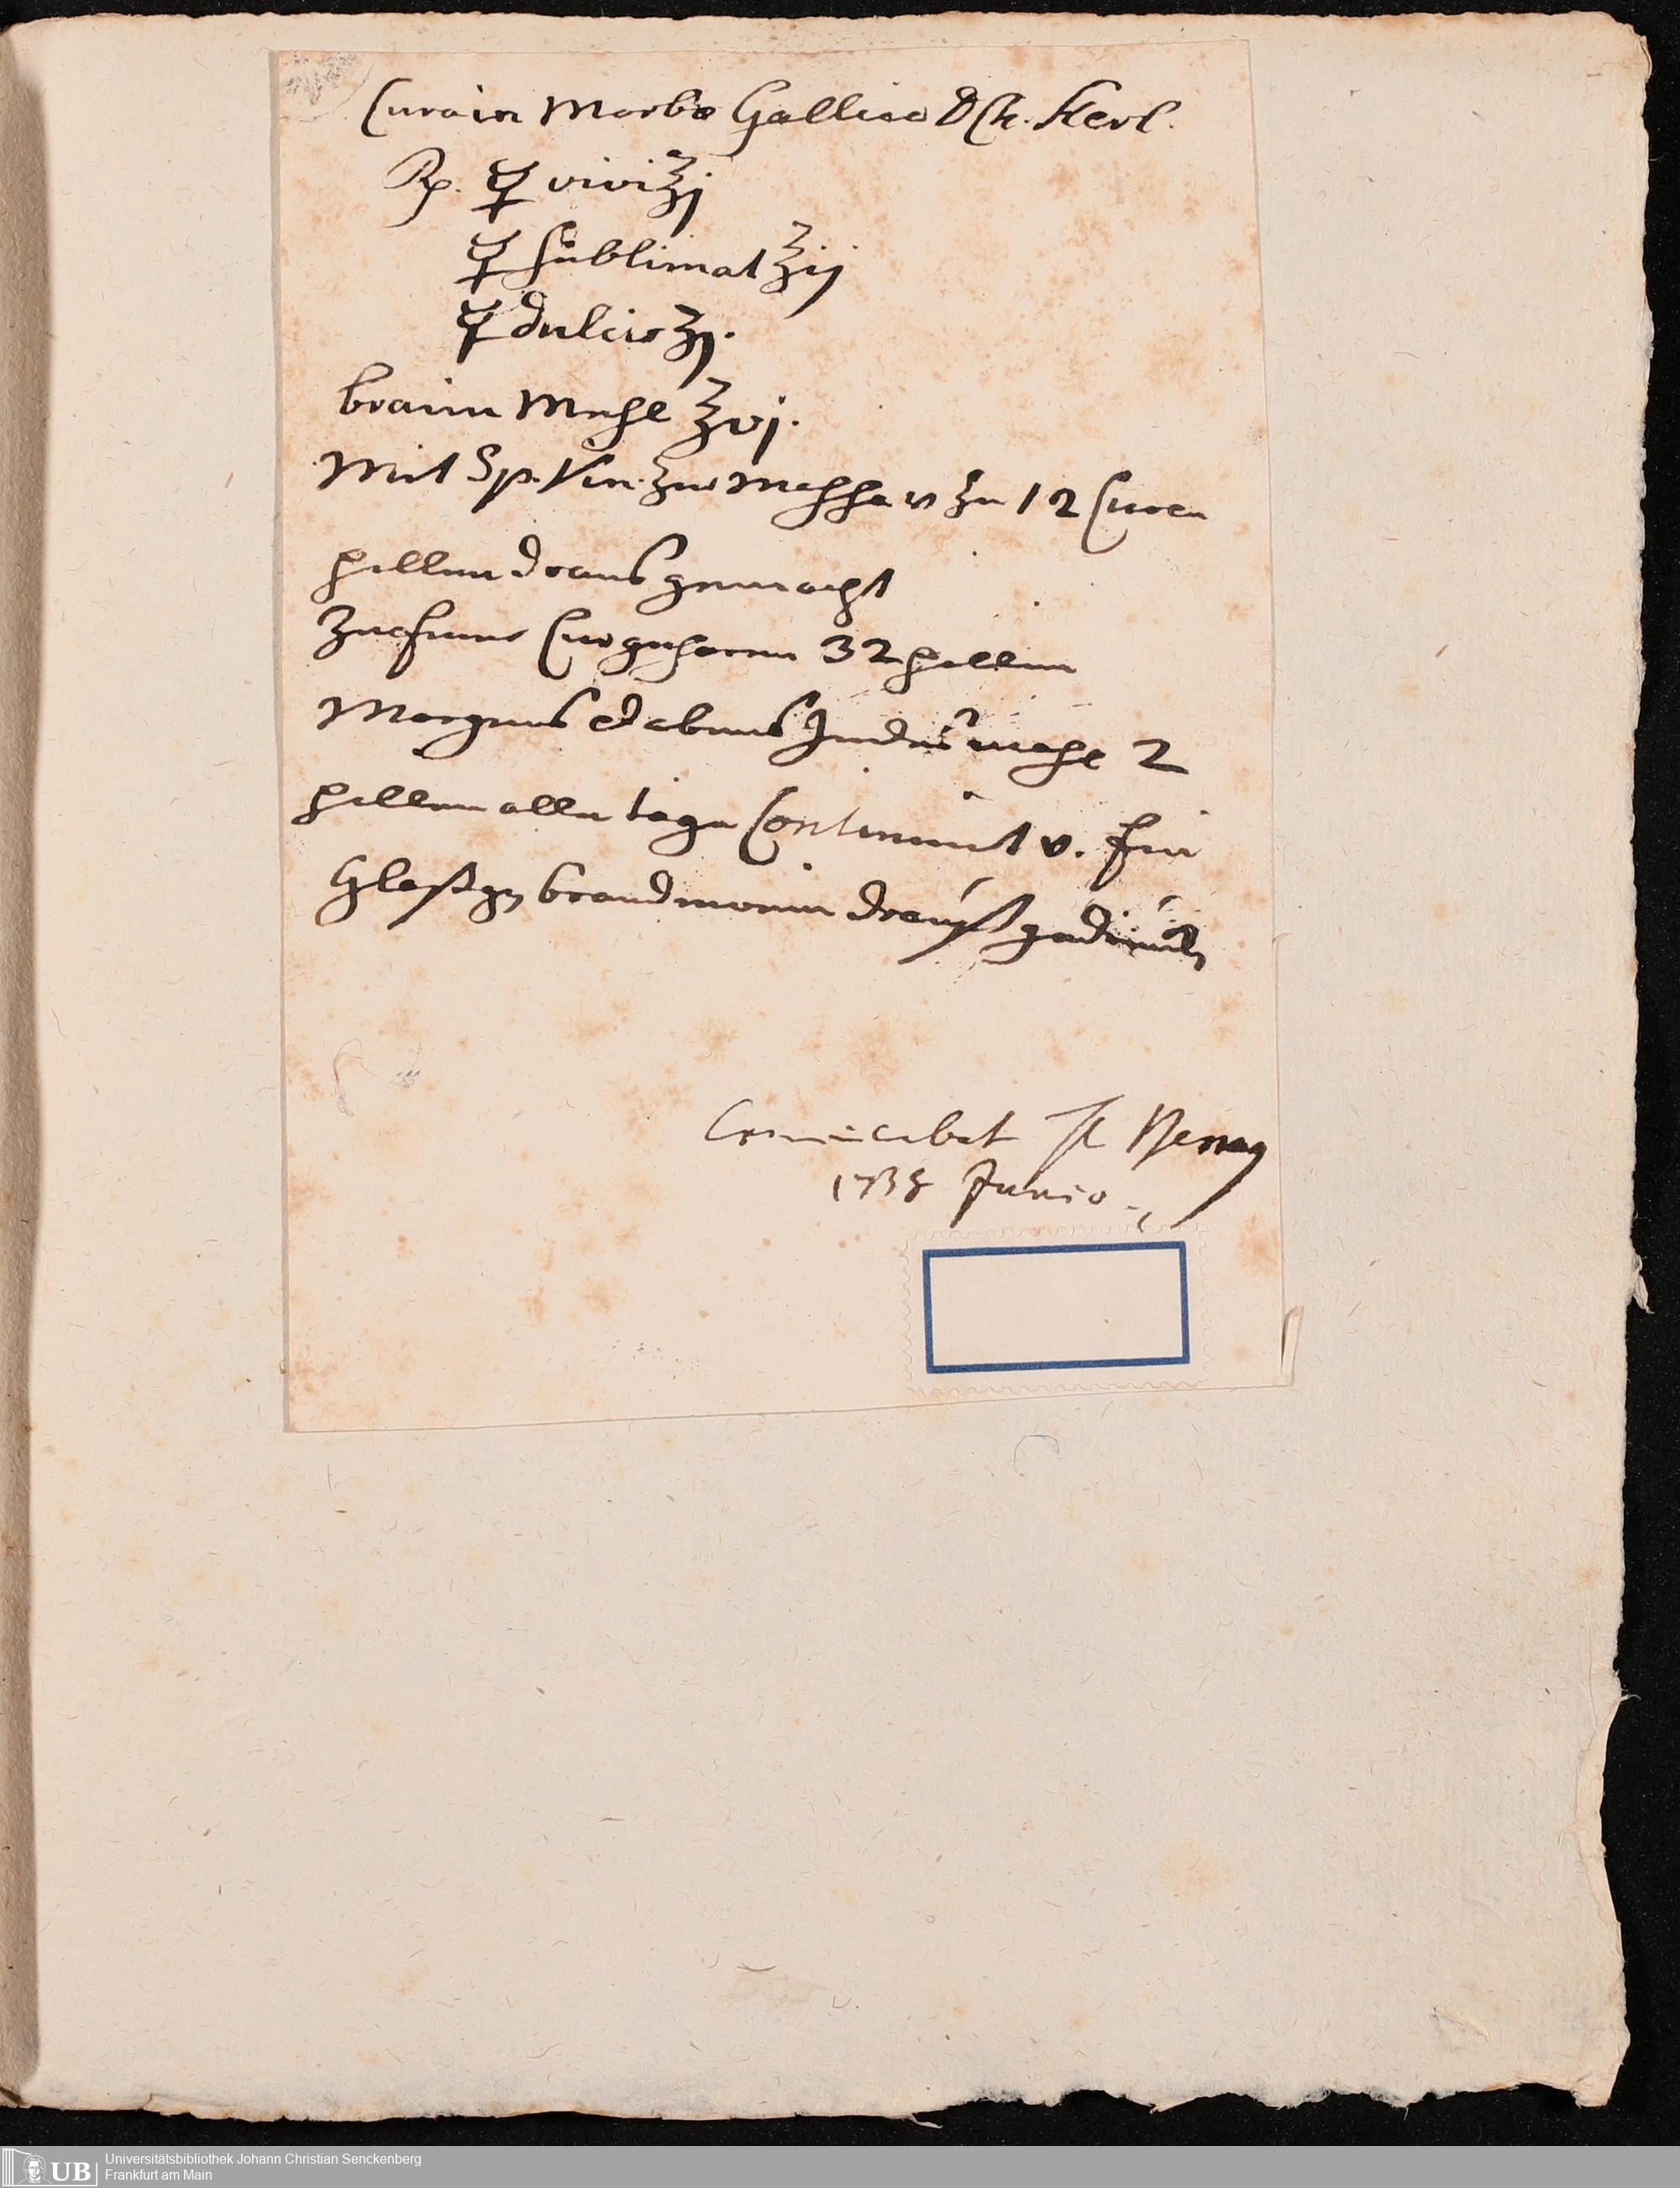 Cura in Morbo Gallico D Ch. Kerl.
Rp. ☿ vivi ℥j
☿ sublimat ʒij
☿ dulcis ʒj.
braun Mehl ℥vj.
Mit Sp. Vin. zur Massa v zu 12 Curen
pillen draus gemacht
Zu einer Cur gehören 32 pillen
Morgens et abens Jedes mahl 2
pillen alle tage Continuirt v. Ein
Gläsgen brandwein drauf
Communicabat
1738 Junio
UB
Universitätsbibliothek Johann Christian Senckenberg
Frankfurt am Main